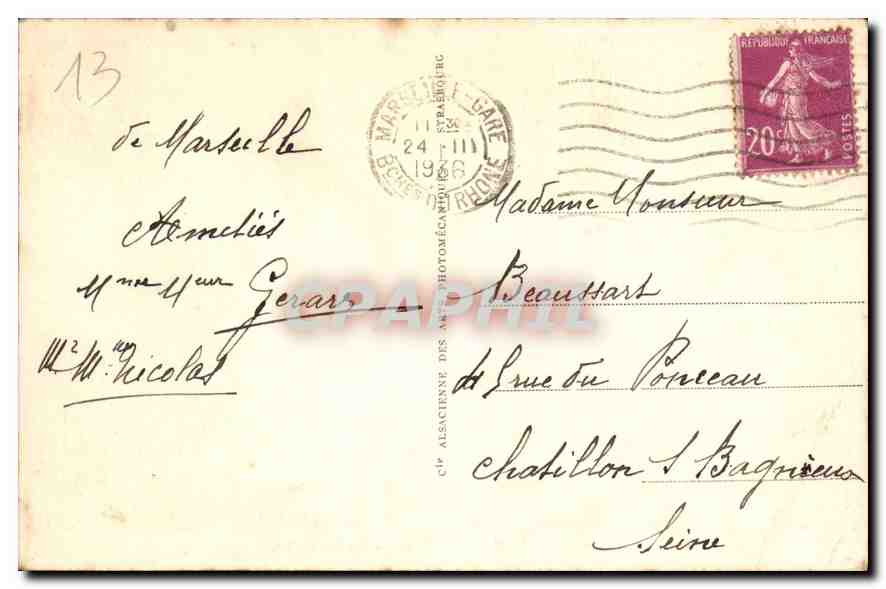 13
de Marseille
Amitiés
Mme Meur Gerard
Mr Mme Nicolas
Cie ALSACIENNE DES ARTS PHOTOMÉCANIQUES - STRASBOURG
MARSEILLE-GARE
24 III
1936
BCHES DU RHONE
REPUBLIQUE FRANÇAISE
20c
POSTES
Madame Monsieur
Beaussart
rue du Ponceau
Chatillon S Bagneux
Seine
CPAPHIL